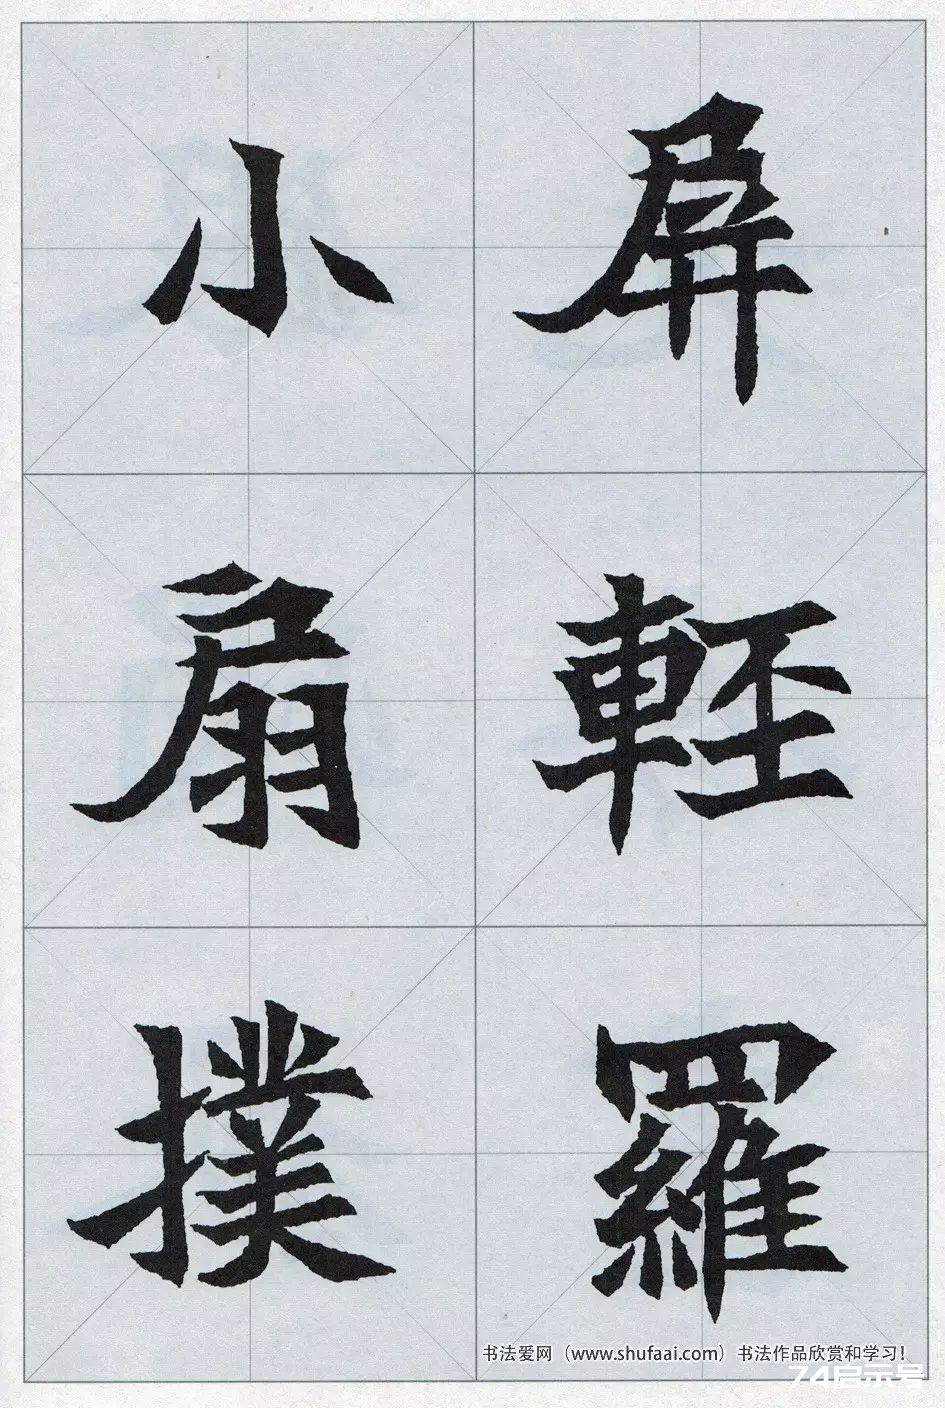 屏輕羅
小扇撲
书法爱网（www.shufaai.com）书法作品欣赏和学习！
74启示号